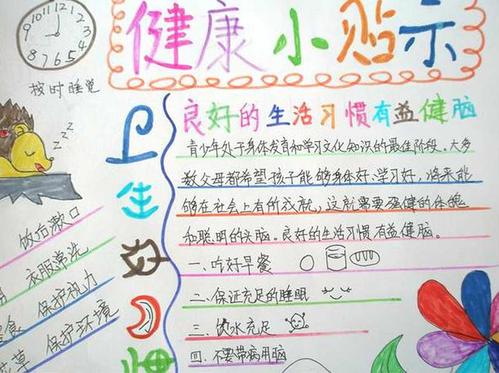 健康小贴示
10 11 12 1 2 3 4 5 6 7 8 9
按时睡觉
zzz
卫生好
饭后漱口
衣服常洗
保护视力
保护环境
良好的生活习惯有益健脑
青少年处于身体发育和学习文化知识的最佳阶段。大多
数父母都希望孩子能够身体好、学习好,将来能
够在社会上有所成就,这就需要强健的体魄
和聪明的头脑。良好的生活习惯有益健脑。
一、吃好早餐
二、保证充足的睡眠
三、饮水充足
四、不要带病用脑